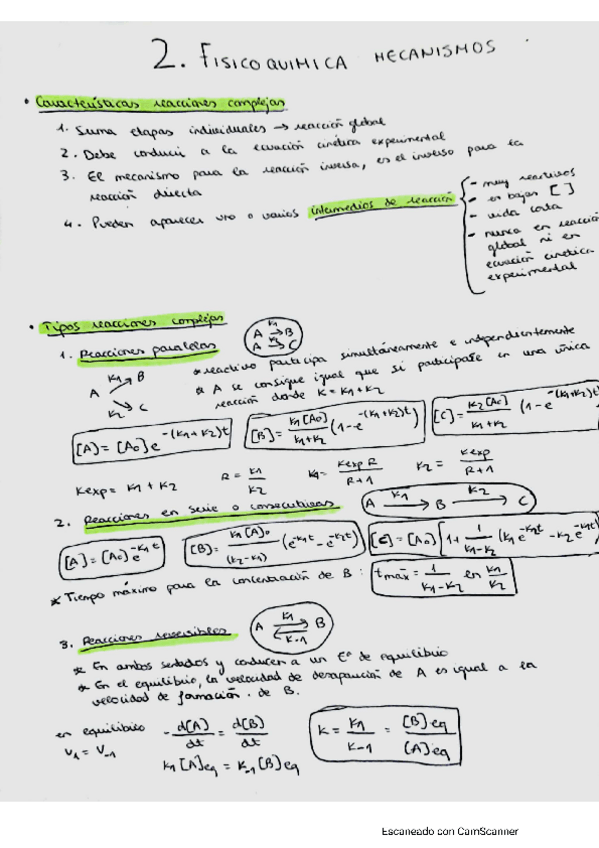 2. FISICOQUIMICA MECANISMOS
• Características reacciones complejas
1. Suma etapas individuales → reacción global
2. Debe conducir a la ecuación cinética experimental
3. El mecanismo para la reacción inversa, es el inverso para la
reacción directa
4. Pueden aparecer uno o varios intermedios de reacción
- muy reactivos
- en bajas [ ]
- vida corta
- nunca en reacción
global ni en
ecuación cinética
experimental
• Tipos reacciones complejas
1. Reacciones paralelas
A →K1 B
A →K2 C
* reactivo participa simultáneamente e independientemente
* A se consigue igual que si participase en una única
reacción donde K = K1+K2
A K1 B
K2 C
[A] = [A0] e^-(K1+K2)t
[B] = K1[A0]/K1+K2 (1-e^-(K1+K2)t)
[C] = K2[A0]/K1+K2 (1-e^-(K1+K2)t)
Kexp = K1 + K2
R = K1/K2
K1 = Kexp R/R+1
K2 = Kexp/R+1
2. Reacciones en serie o consecutivas
A →K1 B →K2 C
[A] = [A0] e^-K1t
[B] = K1[A]0/(K2-K1) (e^-K1t - e^-K2t)
[C] = [A0] [1 + 1/K1-K2 (K1 e^-K2t - K2 e^-K1t
* Tiempo máximo para la concentración de B : tmax = 1/K1-K2 ln K1/K2
3. Reacciones reversibles
A K1 K-1 B
* En ambos sentidos y conducen a un Eº de equilibrio
* En el equilibrio, la velocidad de desaparición de A es igual a la
velocidad de formación de B.
en equilibrio
V1 = V-1
-d[A]/dt = d[B]/dt
K1 [A]eq = K-1 [B]eq
K = K1/K-1 = [B]eq/[A]eq
Escaneado con CamScanner